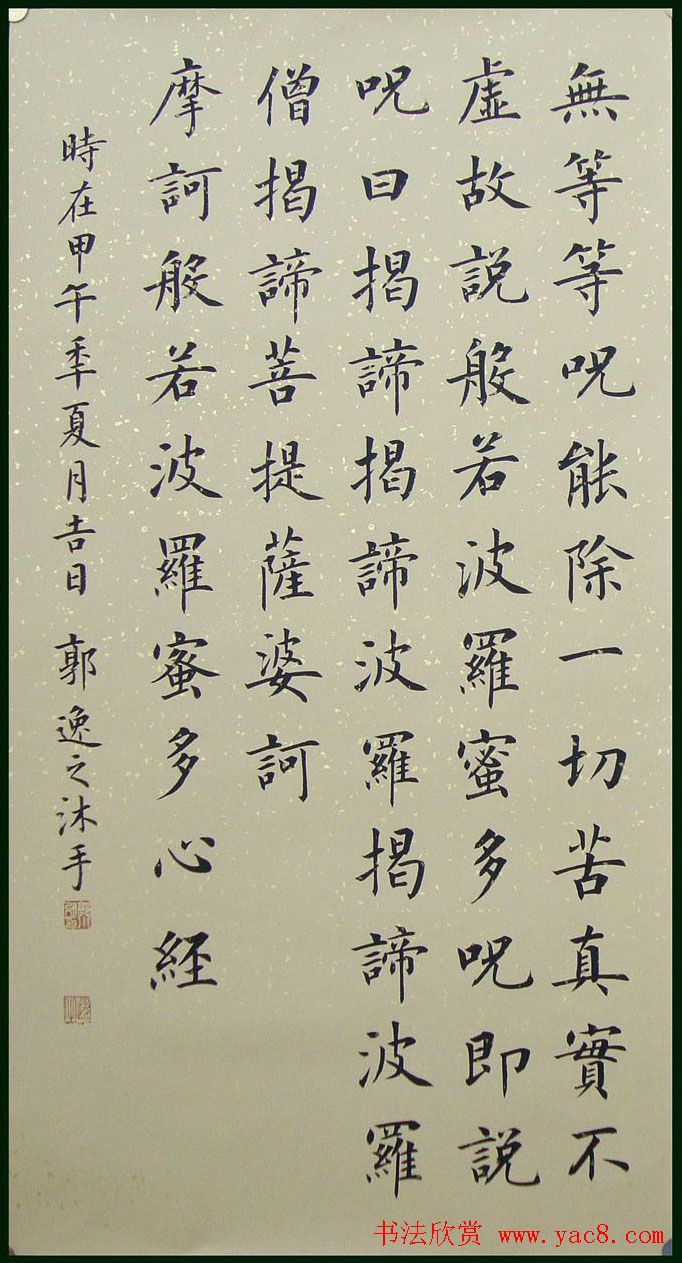 無等等呪能除一切苦真實不
虛故説般若波羅蜜多呪即説
呪曰揭諦揭諦波羅揭諦波羅
僧揭諦菩提薩婆訶
摩訶般若波羅蜜多心経
時在甲午季夏月吉日 郭逸之沐手
书法欣赏 www.yac8.com